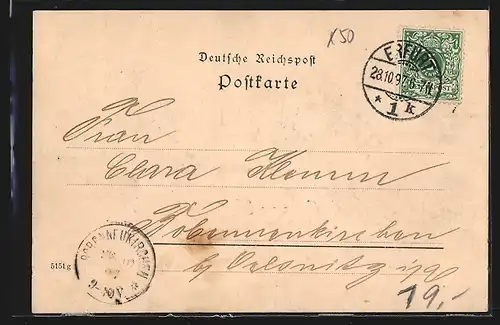 x50
Deutsche Reichspost
Postkarte
ERFURT
28.10.97. 6-7N
* 1 k
Frau
Clara Klemm
Bobenneukirchen
by Oelsnitz i/V
BOBENNEUKIRCHEN
5151 g
19,-